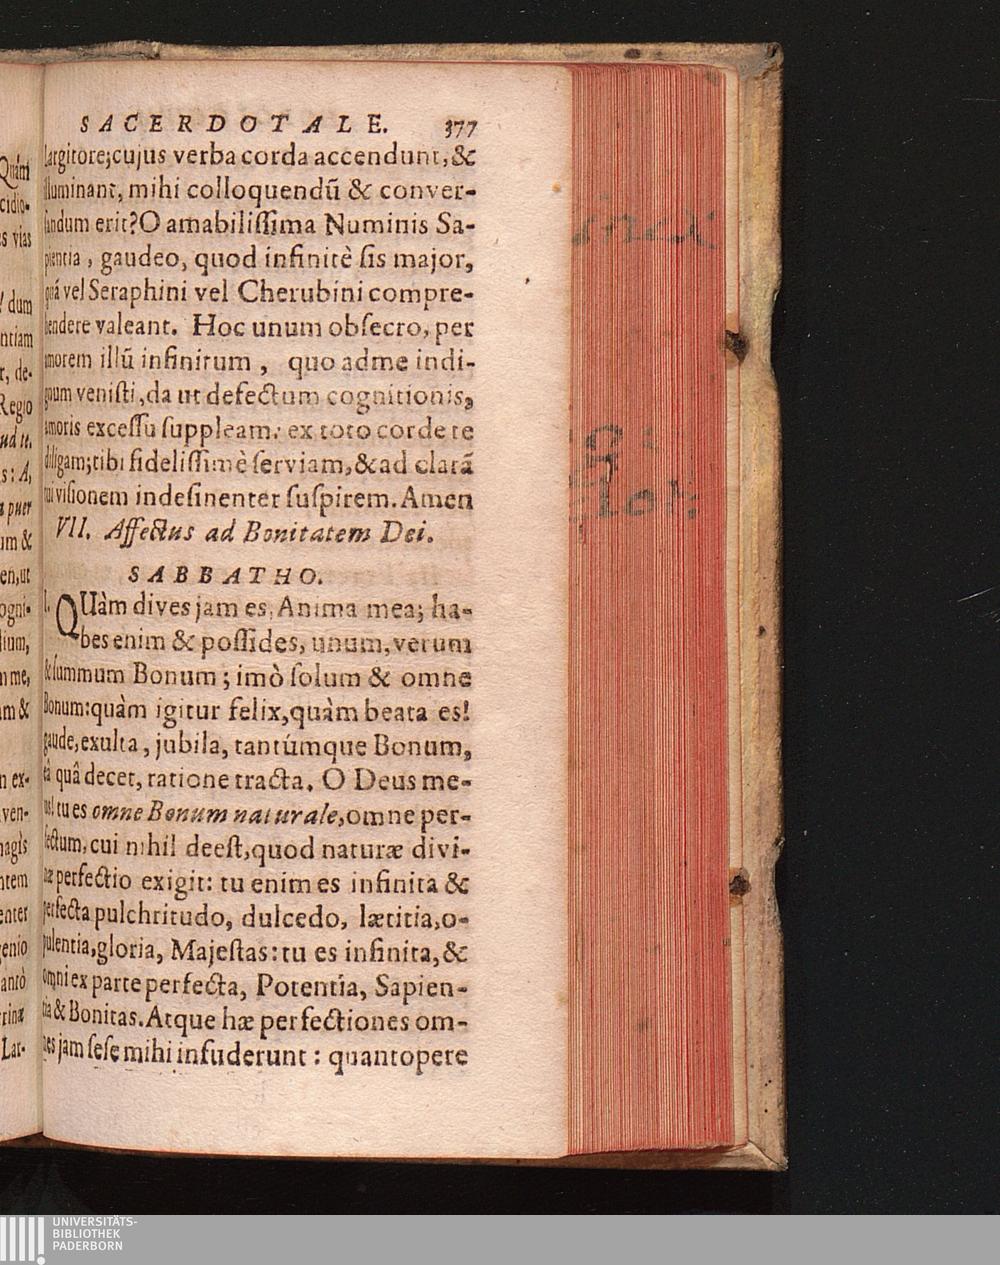 SACERDOTALE. 377
Largitore;cujus verba corda accendunt,&
illuminant, mihi colloquendū & conver-
sandum erit?O amabilissima Numinis Sa-
pientia, gaudeo, quod infinitè sis major,
quá vel Seraphini vel Cherubini compre-
hendere valeant. Hoc unum obsecro, per
amorem illū infinitum, quo adme indi-
gnum venisti,da ut defectum cognitionis,
amoris excessu suppleam: ex toto corde te
diligam;tibi fidelissimè serviam,&ad clarā
tui visionem indesinenter suspirem. Amen
VII. Affectus ad Bonitatem Dei.
SABBATHO.
I. QUàm dives jam es, Anima mea; ha-
bes enim & possides, unum, verum
& summum Bonum; imò solum & omne
Bonum:quàm igitur felix,quàm beata es!
gaude,exulta, jubila, tantúmque Bonum,
eâ quâ decet, ratione tracta. O Deus me-
us! tu es omne Bonum naturale,omne per-
fectum, cui nihil deest,quod naturæ divi-
næ perfectio exigit: tu enim es infinita &
perfecta pulchritudo, dulcedo, lætitia,o-
pulentia,gloria, Majestas: tu es infinita,&
omni ex parte perfecta, Potentia, Sapien-
tia & Bonitas.Atque hæ perfectiones om-
nes jam sese mihi infuderunt: quantopere
Quám
cidio-
s vias
! dum
ntiam
r, de-
Regio
ud te,
s: A,
puer
um &
en,ut
ogni-
lium,
m me,
am &
n ex-
ven-
magìs
ntem
enter
genio
antò
rinæ
Lar-
UNIVERSITÄTS-
BIBLIOTHEK
PADERBORN